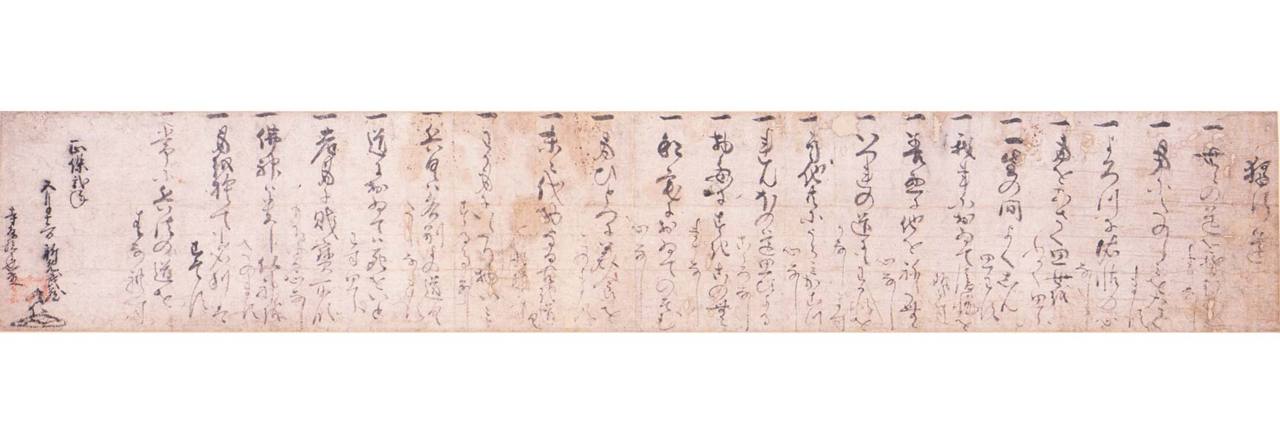 獨行道
一 世々の道をそむく
事なし
一 身にたのしみをたく
ます
一 よろつに依怙の心
なし
一 身をあさく思世を
ふかく思ふ
一 一生の間よくしん
思はす
一 我事において後悔を
せす
一 善悪に他をねたむ
心なし
一 いつれの道にもわかれを
かなします
一 自他共にうらみかこつ
心なし
一 れんほの道思ひよる
こゝろなし
一 物毎にすきこのむ事
なし
一 私宅においてのそむ
心なし
一 身ひとつに美食を
このます
一 末々代物なる古き道具
所持せす
一 わか身にいたり物いみ
する事なし
一 兵具は各別よの道具
たしなます
一 道においては死をいと
わす思ふ
一 老身に財寳所領
もちゆる心なし
一 佛神は貴し佛神を
たのます
一 身を捨ても名利は
すてす
一 常に兵法の道を
はなれす
正保弐年
五月十二日 新免武蔵
玄信
寺尾孫之丞殿